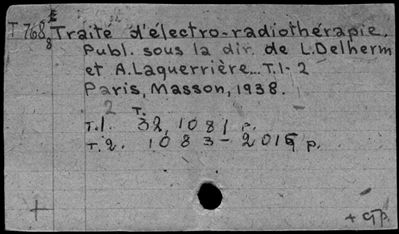 T 768 8 Traité d'électro-radiothérapie.
Publ. sous la dir. de L. Delherm
et A. Laquerrière... T. 1-2
Paris, Masson, 1938.
2 T.
T. 1. 32, 1081 p.
T. 2. 1083-2015 p.